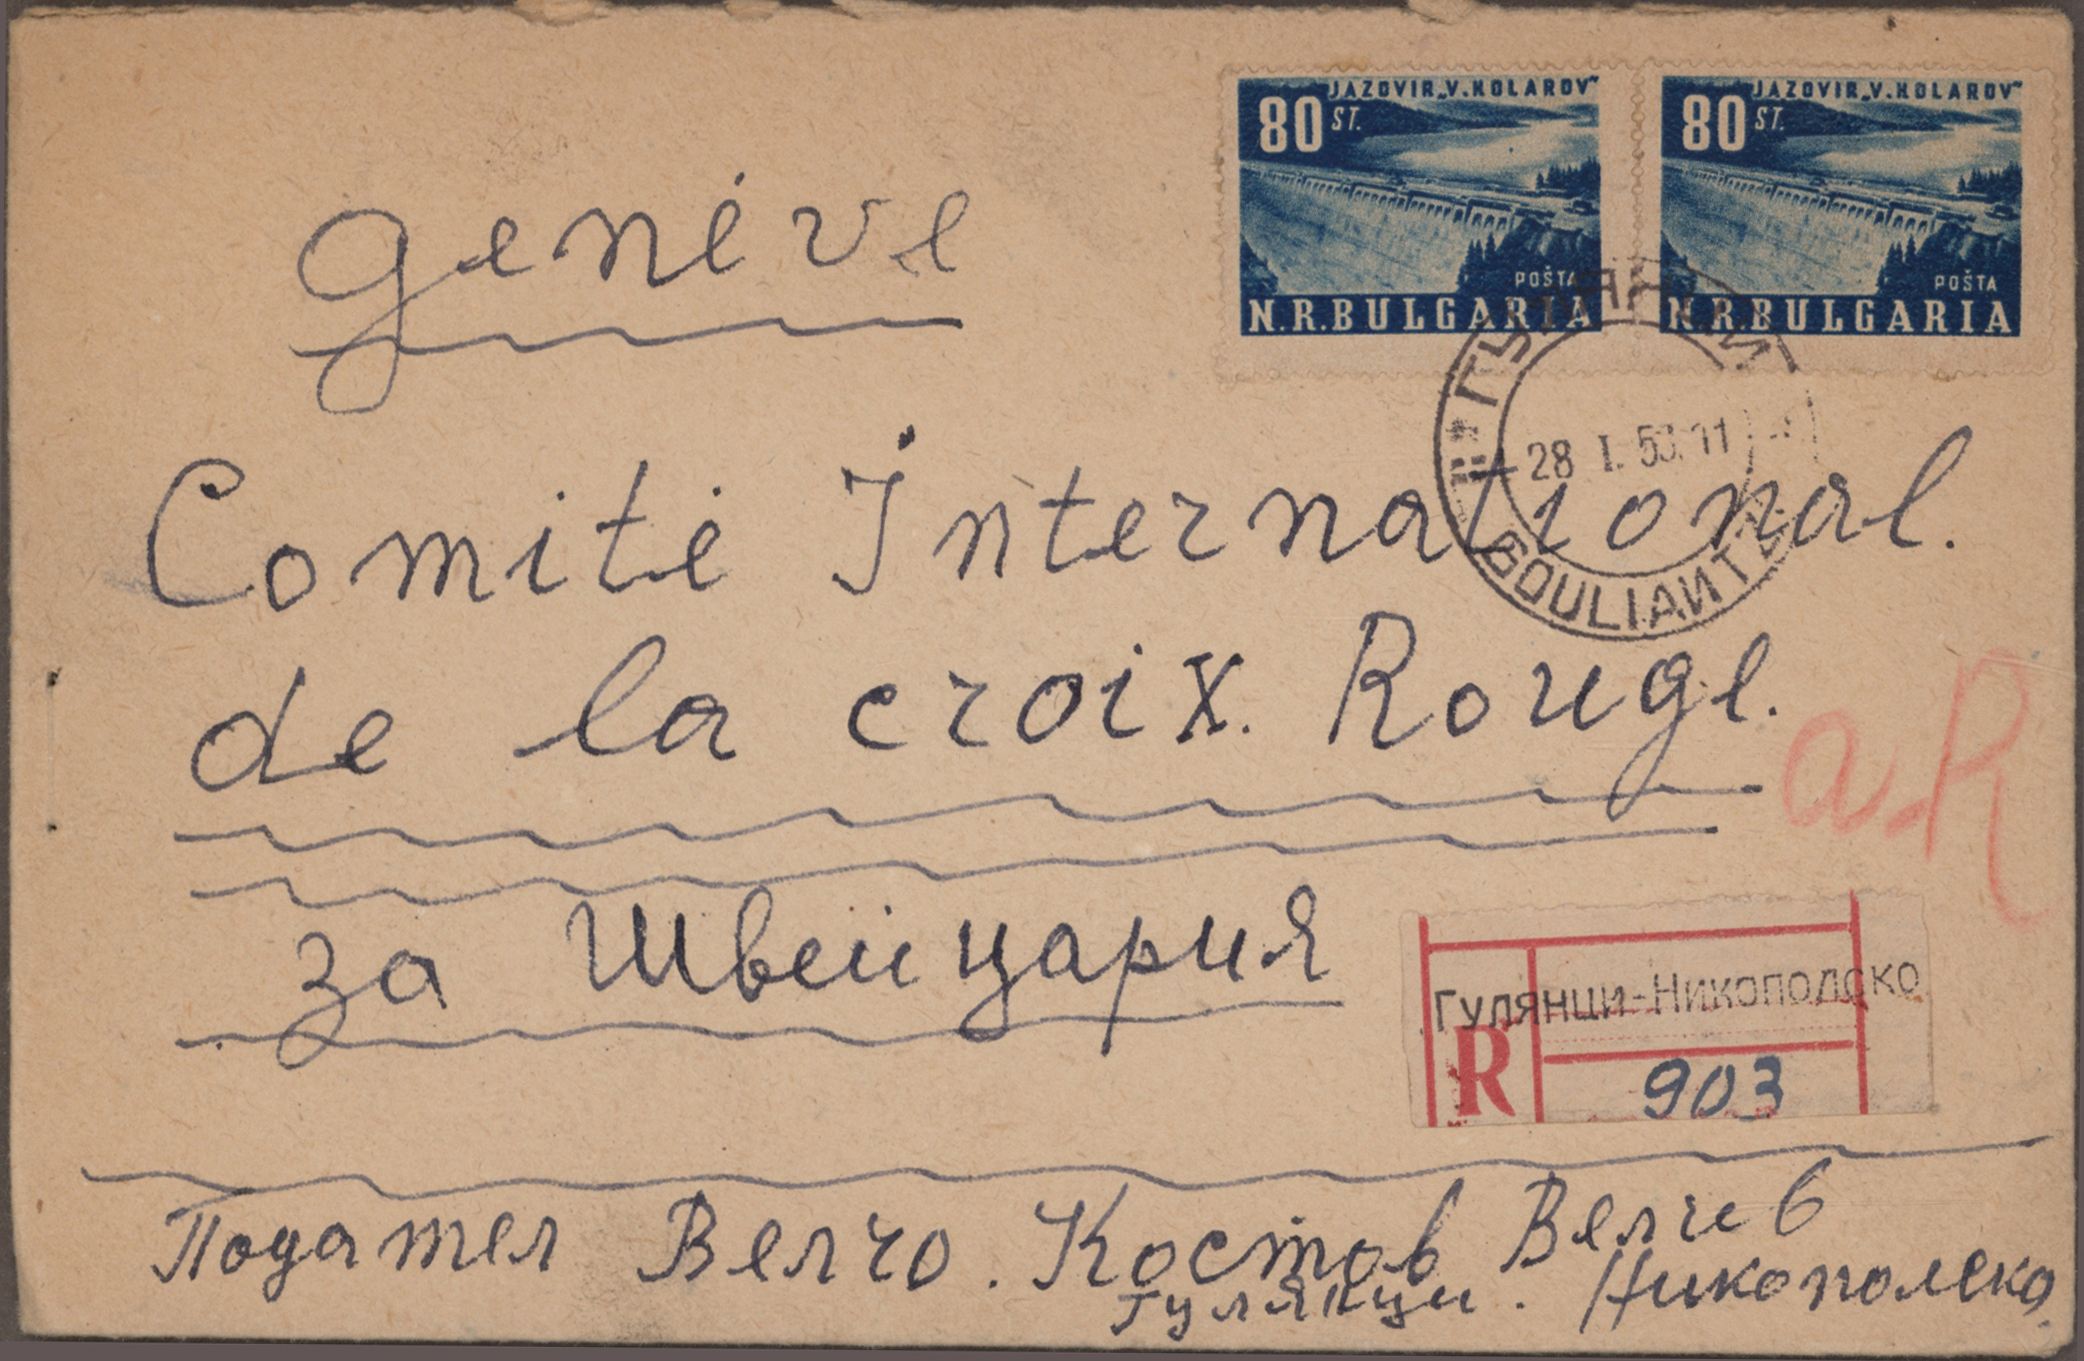 JAZOVIR „V. KOLAROV“
80 ST.
POŠTA
N.R.BULGARIA
JAZOVIR „V. KOLAROV“
80 ST.
POŠTA
N.R.BULGARIA
genéve
ГУЛЯНЦИ
28 I. 53. 11
GOULIANTZI
Comité International.
de la croix. Rouge.
a.R
за Швейцария
Гулянци-Никополско
R
903
Подател Велчо. Костов Велчев
Гулянци. Никополско.